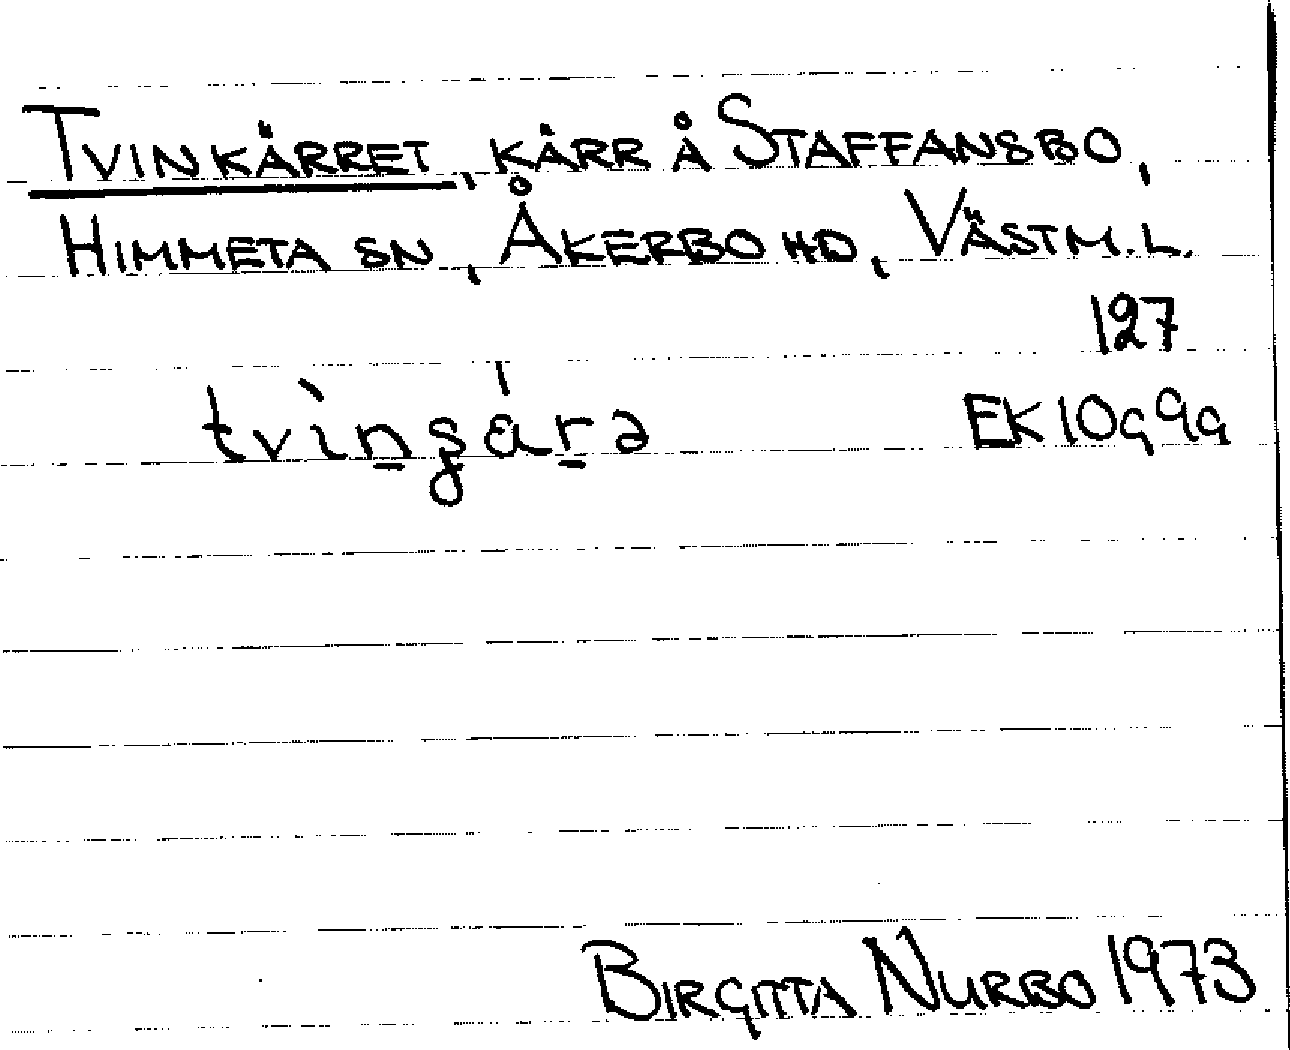 TVINKÄRRET, KÄRR Å STAFFANSBO,
HIMMETA SN, ÅKERBO HD, VÄSTM.L.
127
tvìn̠gár̠ə EK 10g9g
BIRGITTA NURBO 1973